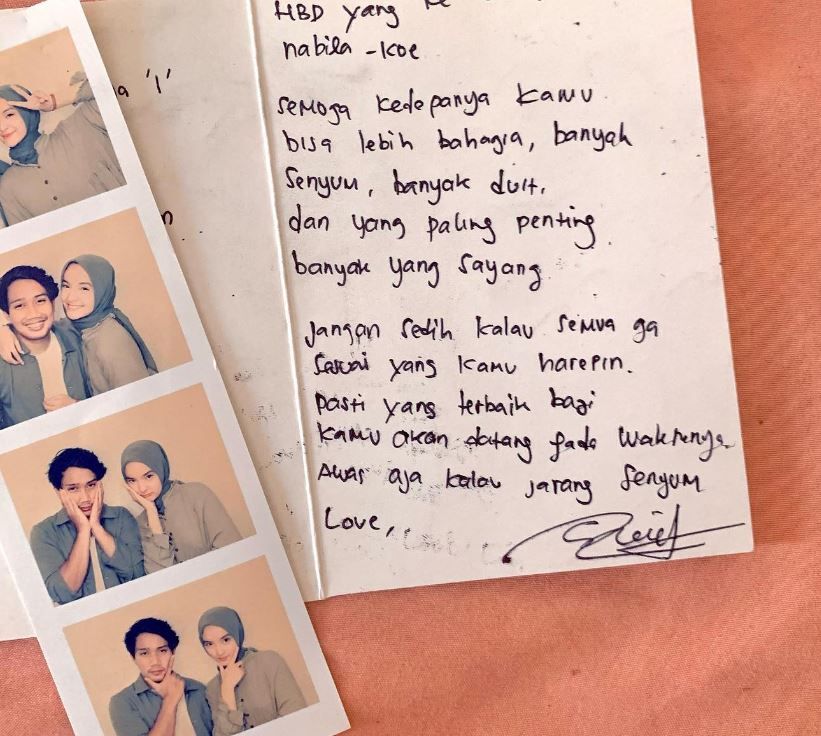 HBD yang ke
nabila -koe
a '1'
n
semoga kedepanya kamu
bisa lebih bahagia, banyak
senyum, banyak duit,
dan yang paling penting
banyak yang sayang
jangan sedih kalau semua ga
sesuai yang kamu harepin.
pasti yang terbaik bagi
kamu akan datang pada waktunya
Awas aja kalau jarang senyum
Love,